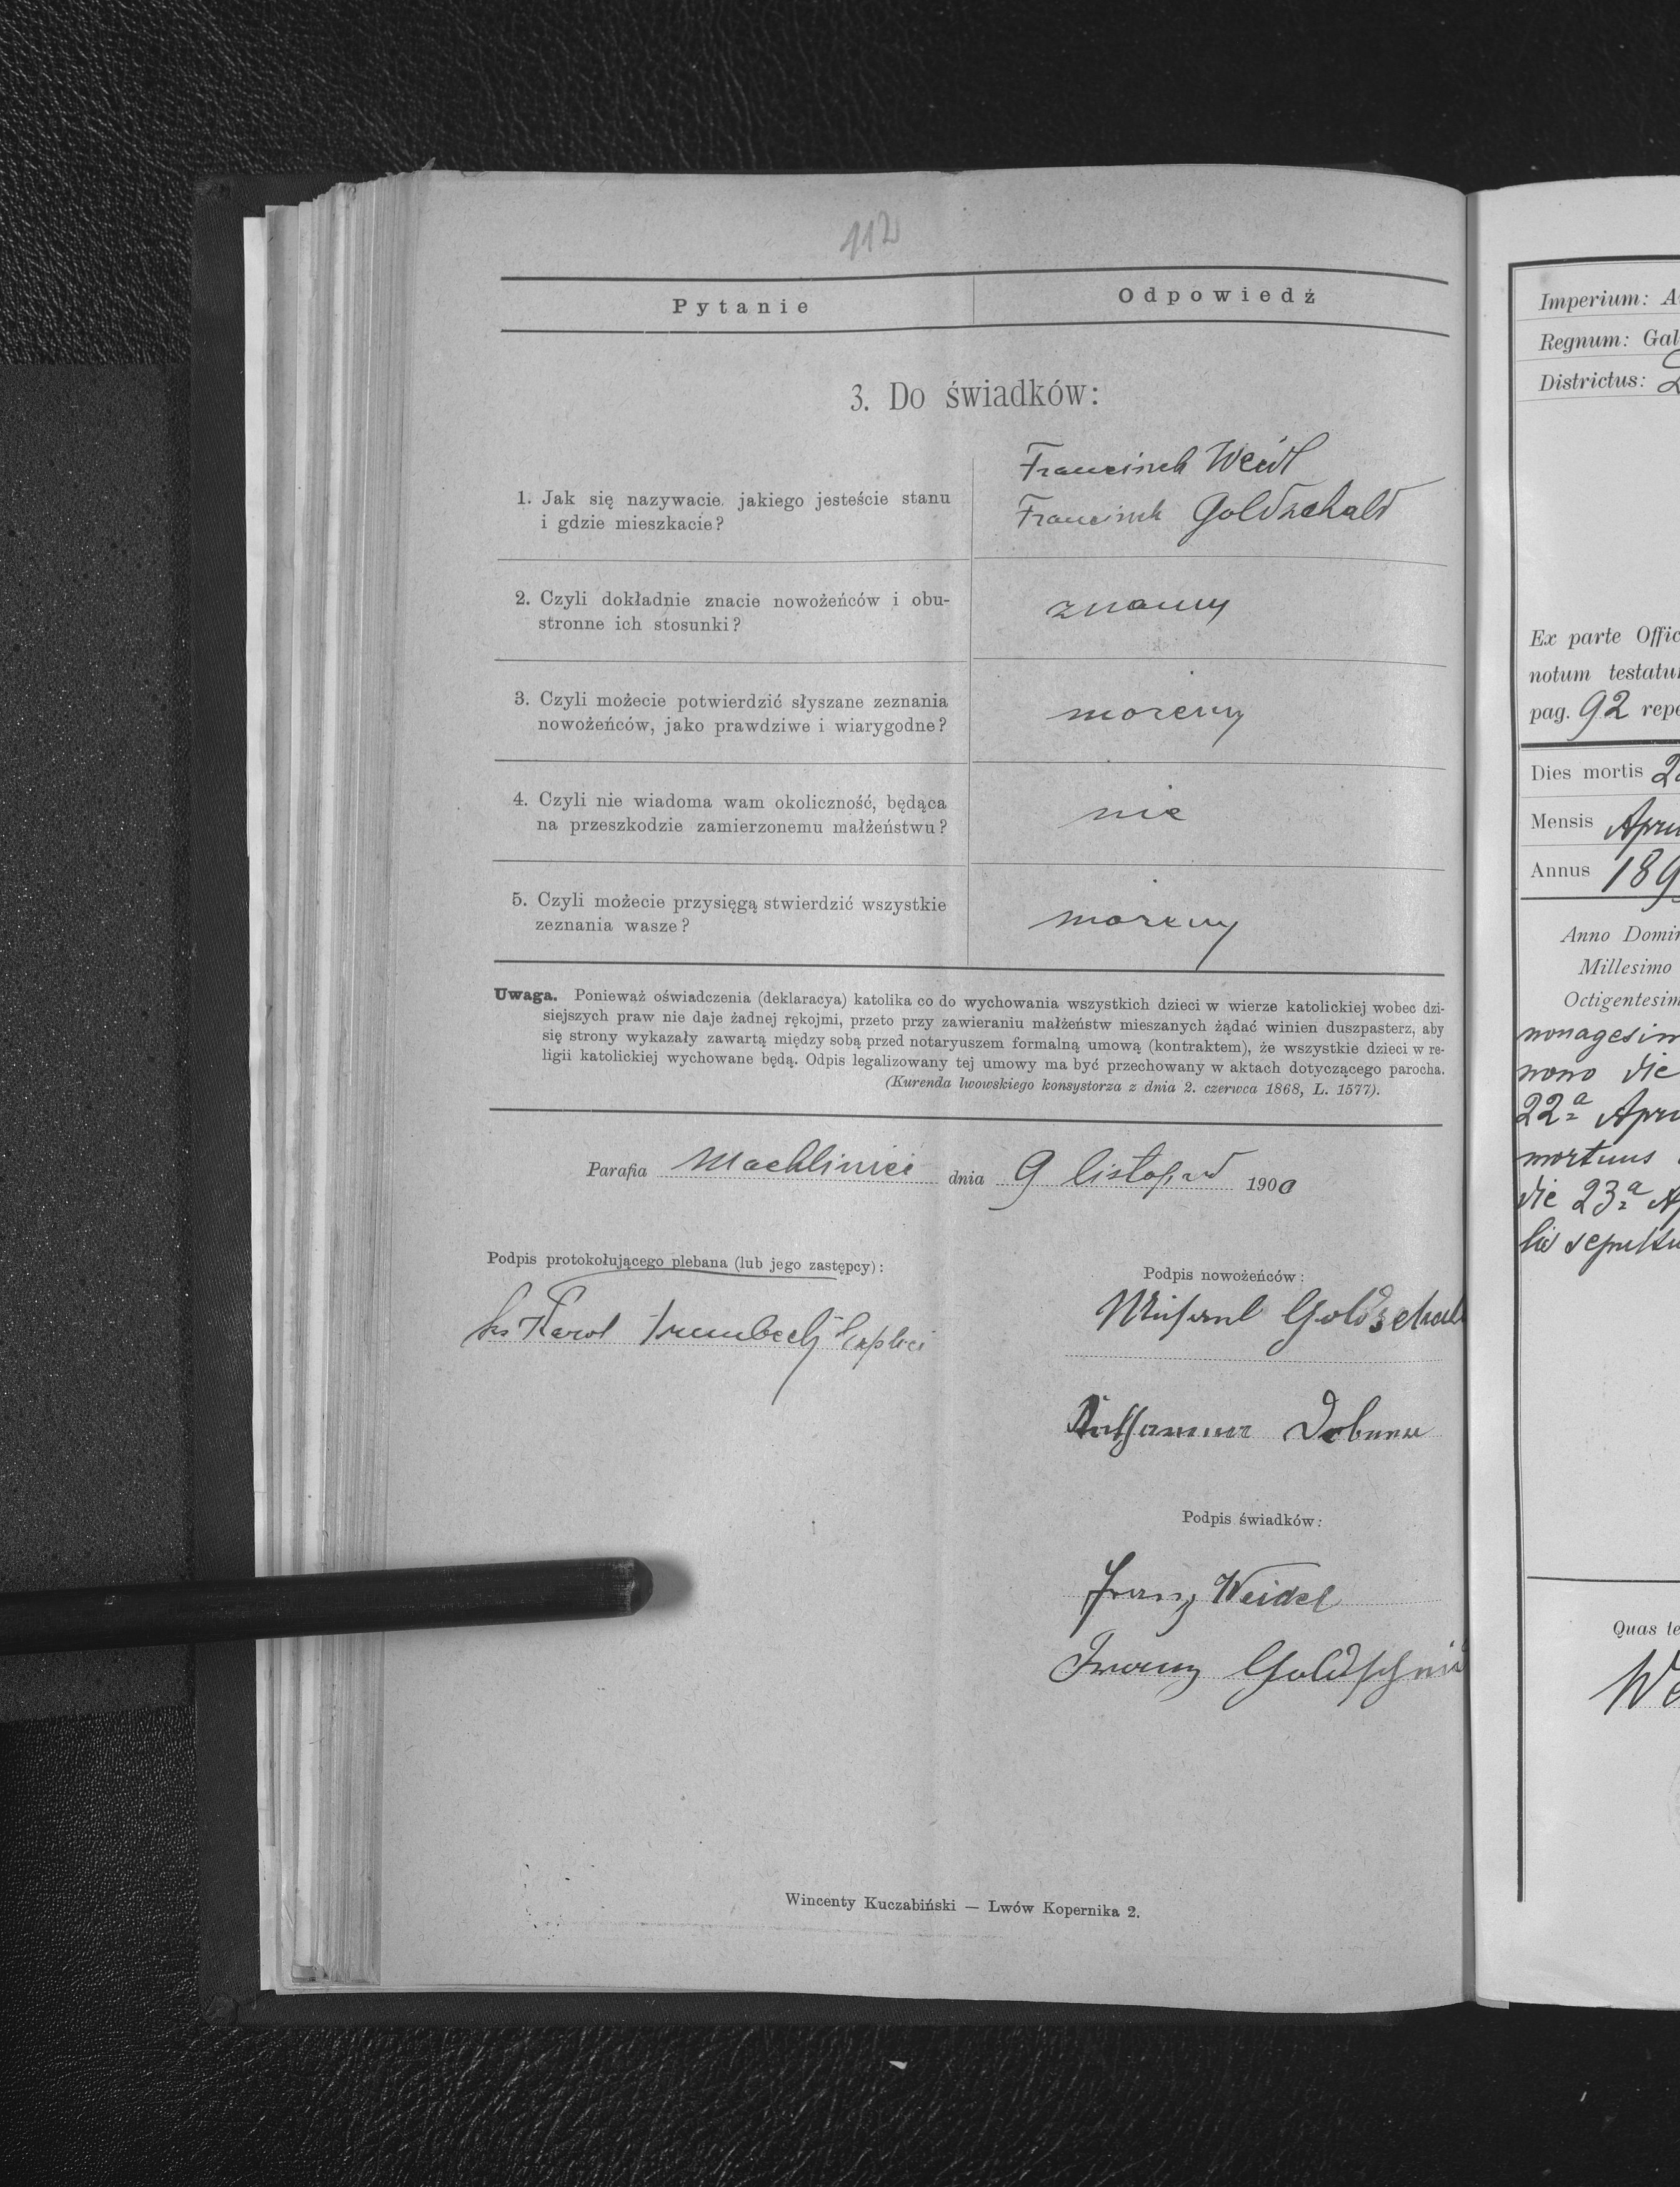 112
Pytanie
Odpowiedź
3. Do świadków:
1. Jak się nazywacie, jakiego jesteście stanu
i gdzie mieszkacie?
Weidl
Goldschald
2. Czyli dokładnie znacie nowożeńców i obu-
stronne ich stosunki?
znamy
3. Czyli możecie potwierdzić słyszane zeznania
nowożeńców, jako prawdziwe i wiarygodne?
możemy
4. Czyli nie wiadoma wam okoliczność, będąca
na przeszkodzie zamierzonemu małżeństwu?
nie
5. Czyli możecie przysięgą stwierdzić wszystkie
zeznania wasze?
możemy
Uwaga. Ponieważ oświadczenia (deklaracya) katolika co do wychowania wszystkich dzieci w wierze katolickiej wobec dzi-
siejszych praw nie daje żadnej rękojmi, przeto przy zawieraniu małżeństw mieszanych żądać winien duszpasterz, aby
się strony wykazały zawartą między sobą przed notaryuszem formalną umową (kontraktem), że wszystkie dzieci w re-
ligii katolickiej wychowane będą. Odpis legalizowany tej umowy ma być przechowany w aktach dotyczącego parocha.
(Kurenda lwowskiego konsystorza z dnia 2. czerwca 1868, L. 1577).
Parafia Machliniec dnia 9 listopad 1900
Podpis protokołującego plebana (lub jego zastępcy):
Ks Karol
Podpis nowożeńców:
Podpis świadków:
Franz Weidel
Franz
Wincenty Kuczabiński — Lwów Kopernika 2.
Imperium: A
Regnum: Gal
Districtus:
Ex parte Offic
notum testatu
pag. 92 repe
Dies mortis 2
Mensis Apri
Annus 189
Anno Domin
Millesimo
Octigentesim
nonagesim
nono die
22a Apri
mortuus
die 23a Ap
lis sepultu
Quas te
We